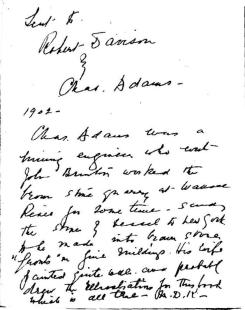 Sent to
Robert Davison
&
Chas. Adams -
1902 -
Chas. Adams was a
mining engineer who with
John Brunton worked the
brown stone quarry at Wallace
River for some time - sending
the stone by vessel to New York
to be made into brown stone
"fronts" on fine buildings. His wife
painted quite well and probably
drew the illustrations for this book
which is all true - M.D.K -